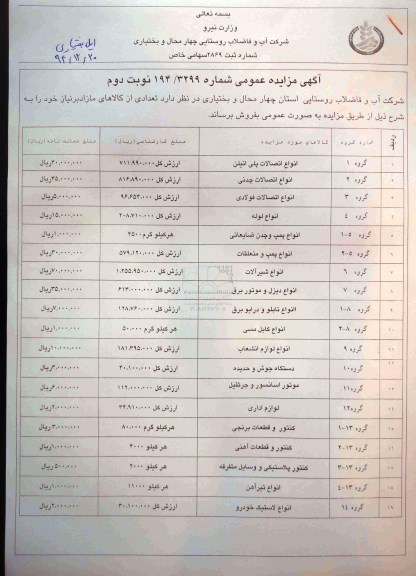 بسمه تعالی
وزارت نیرو
شرکت آب و فاضلاب روستایی چهار محال و بختیاری
شماره ثبت ۲۸۶۹سهامی خاص
۹۴/۱۲/۲۰
آگهی مزایده عمومی شماره ۱۹۴/۳۲۹۹ نوبت دوم
شرکت آب و فاضلاب روستایی استان چهار محال و بختیاری در نظر دارد تعدادی از کالاهای مازادبرنیاز خود را به
شرح ذیل از طریق مزایده به صورت عمومی بفروش برساند.
ردیف شماره گروه کالاهای مورد مزایده مبلغ کارشناسی(ریال)
گروه ۱ انواع اتصالات پلی اتیلن ارزش کل ۷۱۱.۹۹۰.۰۰۰ ۳۰.۰۰۰.۰۰۰ریال
گروه ۲ انواع اتصالات چدنی ارزش کل ۸۱۶.۸۹۰.۰۰۰ ۳۵.۰۰۰.۰۰۰ریال
گروه ۳ انواع اتصالات فولادی ارزش کل ۹۶.۶۵۳.۰۰۰ ۵.۰۰۰.۰۰۰ریال
گروه ۴ انواع لوله ارزش کل ۲۰۸.۷۱۰.۰۰۰ ۱۵.۰۰۰.۰۰۰ریال
گروه ۱-۵ انواع پمپ وچدن ضایعاتی هرکیلو گرم ۲۵۰۰ ۱.۰۰۰.۰۰۰ریال
گروه ۲-۵ انواع پمپ و متعلقات ارزش کل ۵۷۹.۱۲۰.۰۰۰ ۳۰.۰۰۰.۰۰۰ریال
گروه ۶ انواع شیرآلات ارزش کل ۱.۲۵۵.۹۵۰.۰۰۰ ۷۰.۰۰۰.۰۰۰ریال
گروه ۷ انواع دیزل و موتور برق ارزش کل ۶۱۳.۰۰۰.۰۰۰ ۳۵.۰۰۰.۰۰۰ریال
گروه ۱-۸ انواع تابلو و درایو برق ارزش کل ۱۲۸.۷۶۰.۰۰۰ ۷.۰۰۰.۰۰۰ریال
گروه ۲-۸ انواع کابل مسی هر کیلو گرم ۵۰.۰۰۰ ۱.۰۰۰.۰۰۰ریال
گروه ۹ انواع لوازم انشعاب ارزش کل ۱۸۱.۳۹۵.۰۰۰ ۱۰.۰۰۰.۰۰۰ریال
گروه۱۰ دستگاه جوش و حدیده ارزش کل ۴۰.۱۰۰.۰۰۰ ۳.۰۰۰.۰۰۰ریال
گروه۱۱ موتور آسانسور و جرثقیل ارزش کل ۱۱۲.۰۰۰.۰۰۰ ۶.۰۰۰.۰۰۰ریال
گروه۱۲ لوازم اداری ارزش کل ۳۴.۹۱۰.۰۰۰ ۲.۰۰۰.۰۰۰ریال
گروه ۱-۱۳ کنتور و قطعات برنجی هرکیلو گرم ۸۰.۰۰۰ ۳.۰۰۰.۰۰۰ریال
گروه ۲-۱۳ کنتور و قطعات آهنی هر کیلو ۴۰۰۰ ۱.۰۰۰.۰۰۰ریال
گروه ۳-۱۳ کنتور پلاستیکی و وسایل متفرقه هرکیلو ۲۰۰۰ ۵۰۰.۰۰۰ ریال
گروه ۴-۱۳ انواع تیرآهن هرکیلو ۱۱۰۰۰ ۱.۰۰۰.۰۰۰ریال
گروه ۱۴ انواع لاستیک خودرو ارزش کل ۳۰.۱۰۰.۰۰۰ ۲.۰۰۰.۰۰۰ریال